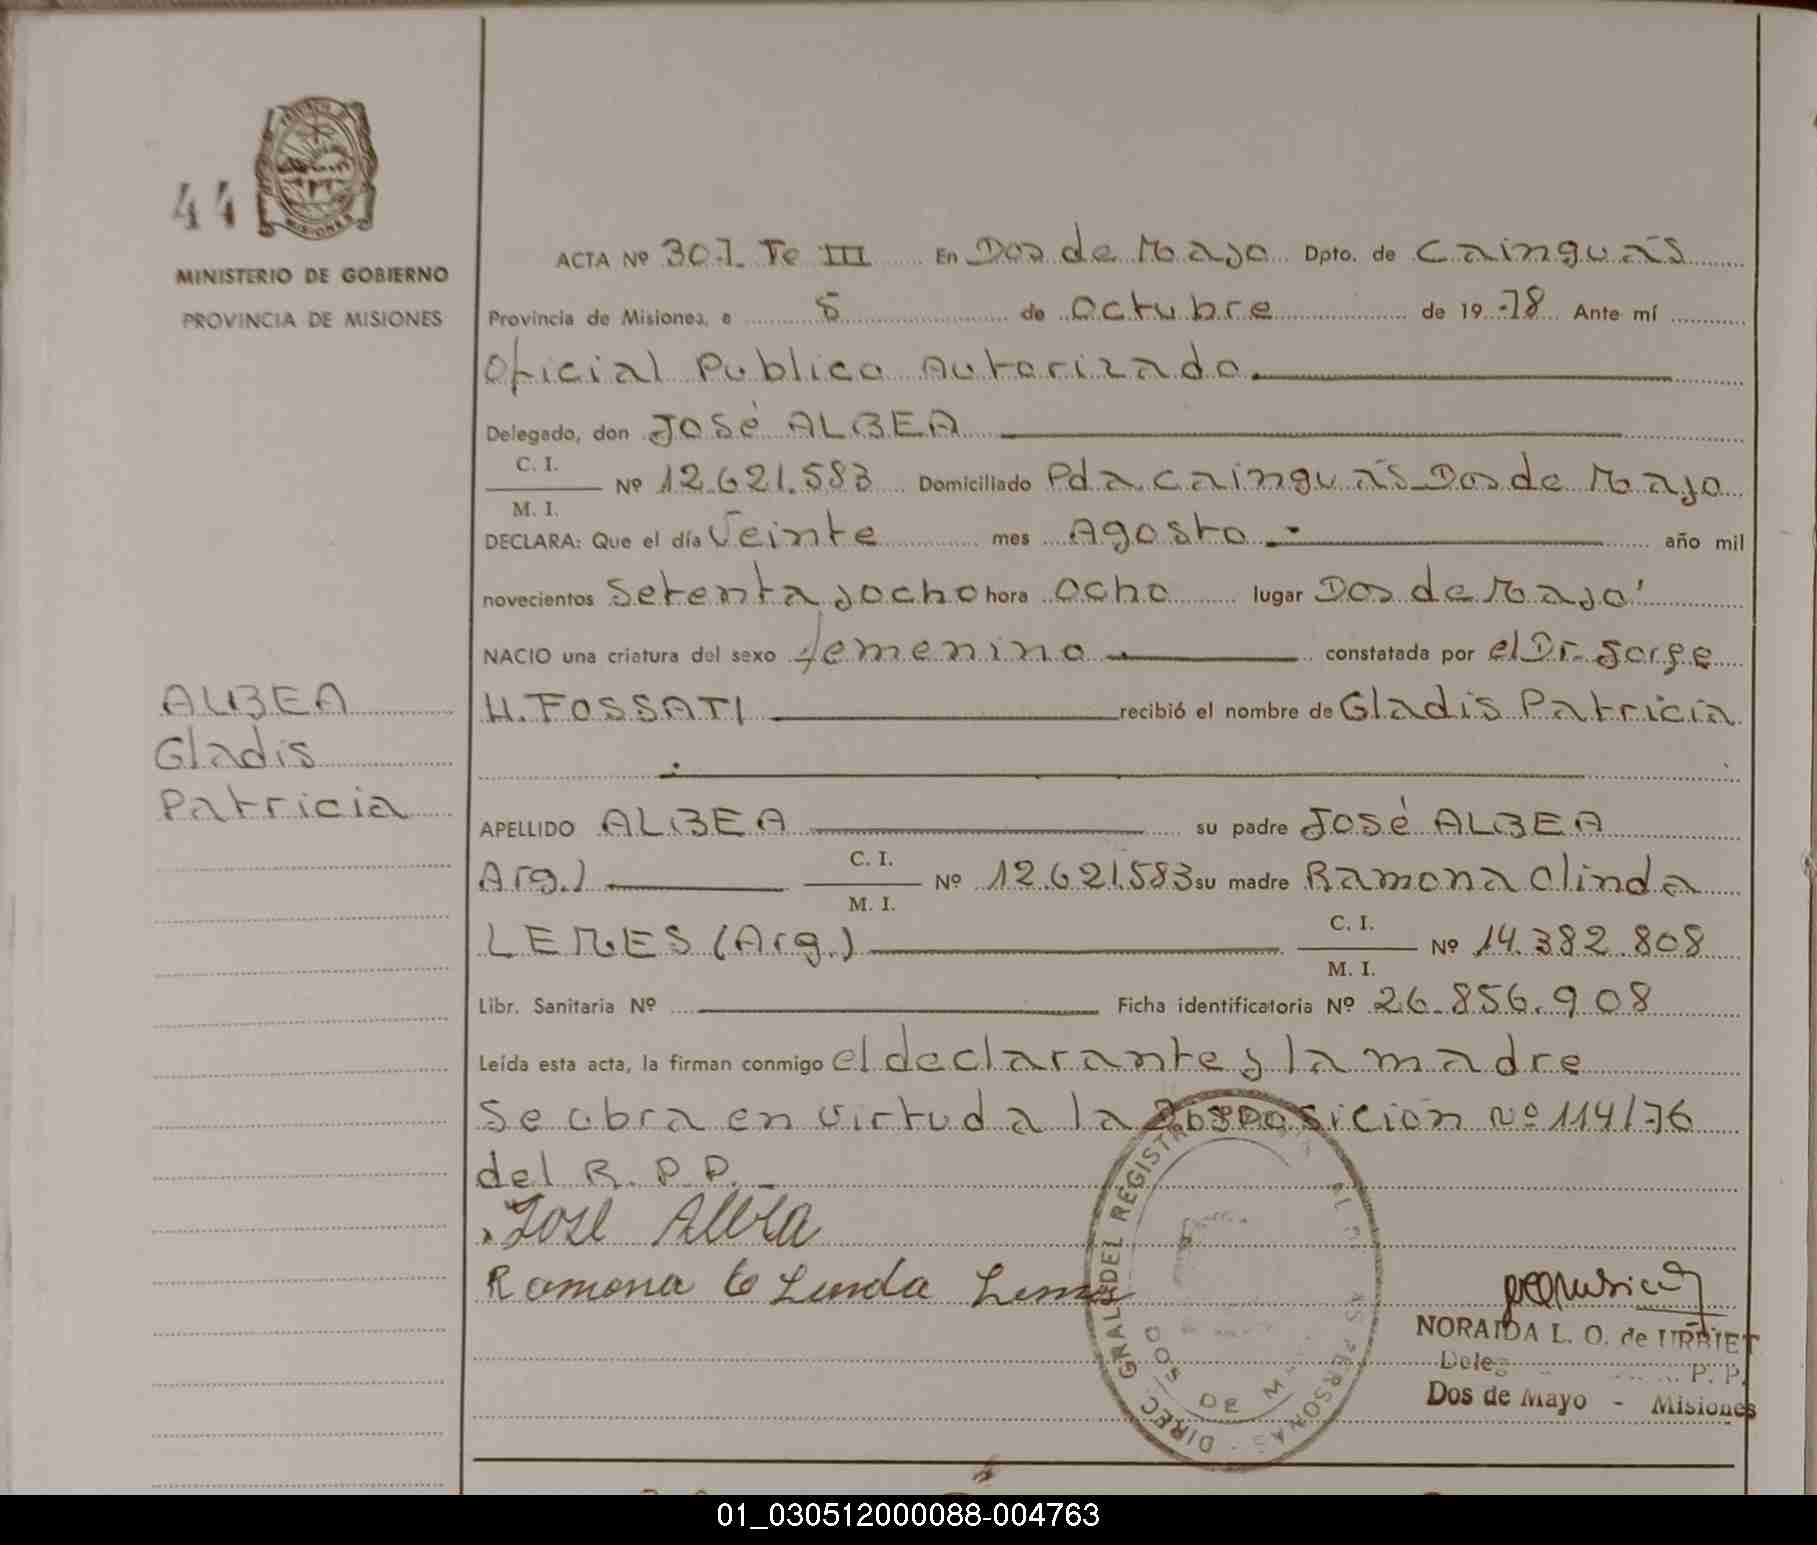 44
MISIONES
MINISTERIO DE GOBIERNO
PROVINCIA DE MISIONES
ALBEA
Gladis
Patricia
ACTA Nº 307. To III En Dos de Mayo Dpto. de Cainguás
Provincia de Misiones, a 5 de Octubre de 19 78 Ante mí
Oficial Publico Autorizado.
Delegado, don José ALBEA
C. I.
M. I. Nº 12.621.583 Domiciliado Pda Cainguás Dos de Mayo
DECLARA: Que el día Veinte mes Agosto año mil
novecientos Setenta y ocho hora ocho lugar Dos de Mayo
NACIO una criatura del sexo femenino constatada por el Dr. Jorge
H. FOSSATI recibió el nombre de Gladis Patricia
APELLIDO ALBEA su padre José ALBEA
Arg.) C. I. M. I. Nº 12.621.583 su madre Ramona Olinda
LEMES (Arg.) C. I. M. I. Nº 14.382.808
Libr. Sanitaria Nº Ficha identificatoria Nº 26.856.908
Leída esta acta, la firman conmigo el declarante y la madre
Se obra en virtud a la Disposición Nº 114/76
del R. P. P.
José Albea
Ramona O Linda Lemes
DIREC. GRAL. DEL REGISTR AS PERSONAS
DOS DE M
NORAIDA L. O. de URBIET
Deleg P. P.
Dos de Mayo - Misiones
01_030512000088-004763